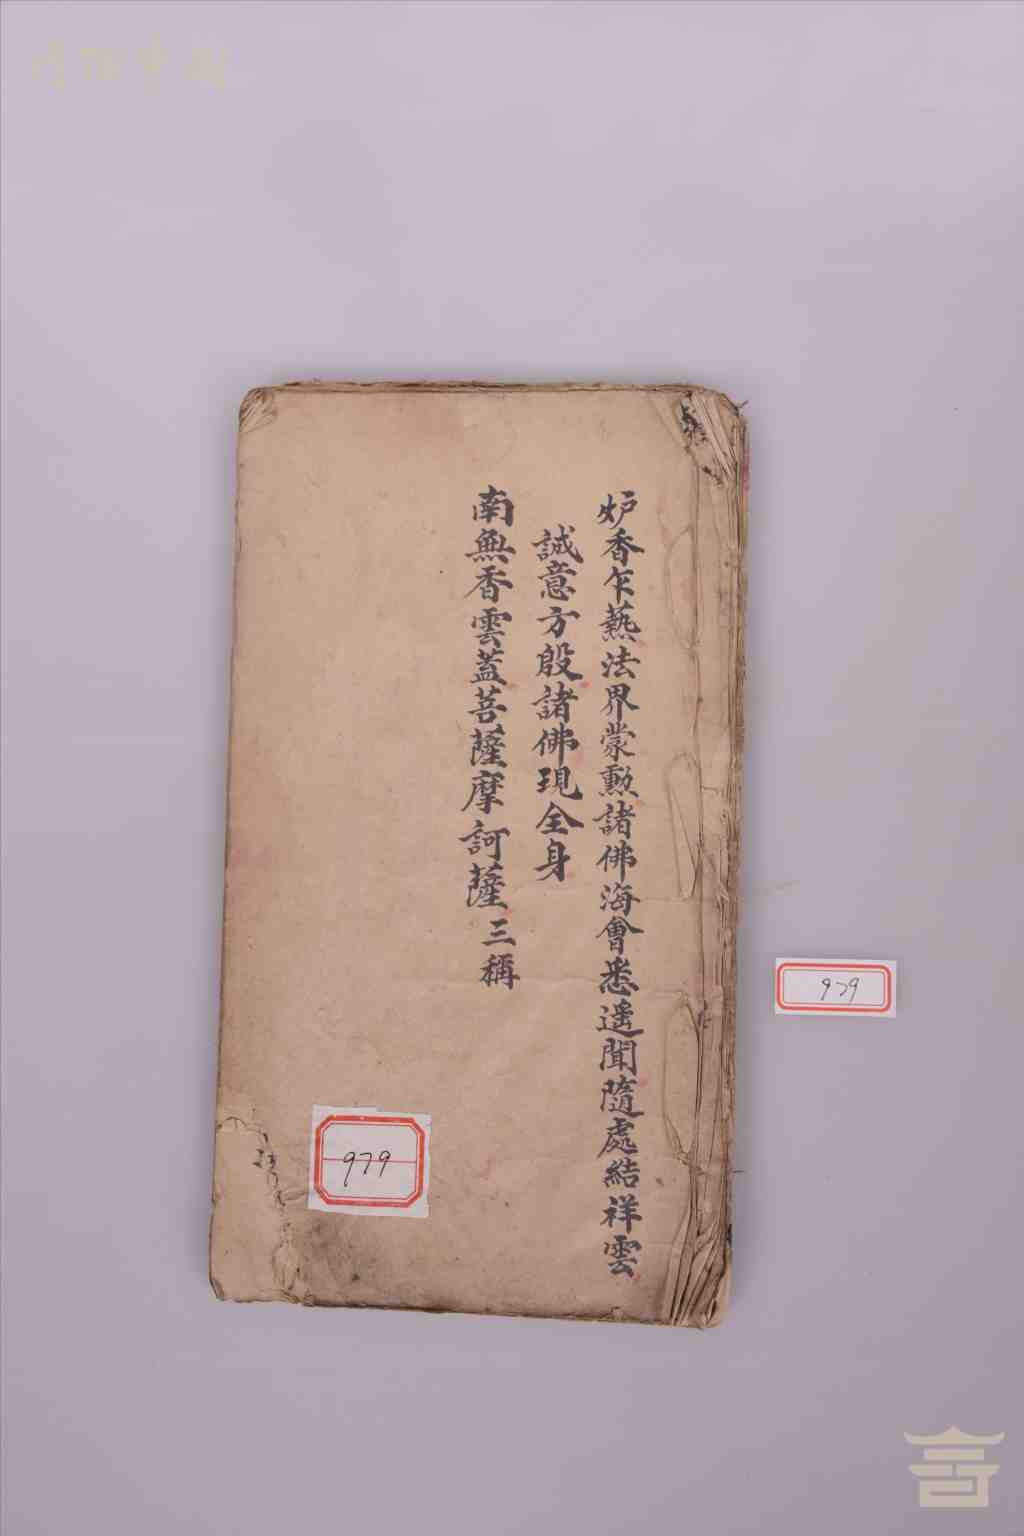 炉香乍爇法界蒙勲諸佛海會悉遥聞隨處結祥雲
誠意方殷諸佛現全身
南無香雲蓋菩薩摩訶薩三稱
979
979